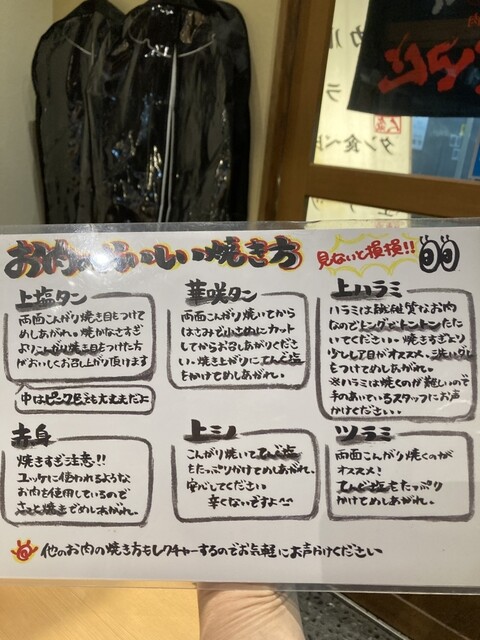 カル
ラ
タン食べ
お肉のおいしい焼き方
見ないと損損!!
上塩タン
両面こんがり焼き目をつけて
めしあがれ。焼かなさすぎ
よりこんがり焼き目をつけた方
がおいしくお召し上がり頂けます
中はピンク色でも大丈夫だよ
華咲タン
両面こんがり焼いてから
はさみで小さめにカット
してからお召しあがりくださ
い。焼き上がりにてんぐ塩
をかけてめしあがれ。
上ハラミ
ハラミは繊維質なお肉
なのでトングでトントンたた
いてください。焼きすぎより
少しレア目がオススメ。洗いダレ
をつけてめしあがれ。
※ハラミは焼くのが難しいので
手のあいているスタッフにお声
かけください。
赤身
焼きすぎ注意!!
ユッケに使われるような
お肉を使用しているので
さっと焼きでめしあがれ。
上ミノ
こんがり焼いててんぐ塩
をたっぷりかけてめしあがれ。
安心してください
辛くないですよ^^
ツラミ
両面こんがり焼くのが
オススメ!
てんぐ塩をたっぷり
かけてめしあがれ。
他のお肉の焼き方もレクチャーするのでお気軽にお声かけください